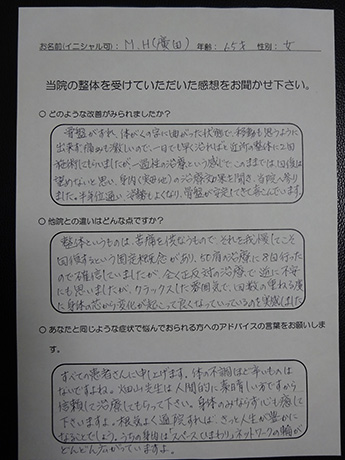 お名前(イニシャル可): M.H(廣田) 年齢: 65才 性別: 女
当院の整体を受けていただいた感想をお聞かせ下さい。
○ どのような改善がみられましたか？
骨盤がずれ、体がくの字に曲がった状態で、移動も思うように
出来ず痛みも激しいので、一日でも早く治ればと近所の整体に2回
施術してもらいましたが一過性の治療という感じで、このままでは回復は
望めないと思い、身内(実田地)の治療効果を聞き、当院へ参り
ました。半年位通い、姿勢もよくなり、骨盤が安定してきて喜んでいます
○ 他院との違いはどんな点ですか？
整体というものは、苦痛を伴なうもので、それを我慢してこそ
回復するという固定概念があり、50肩の治療に8回行った
ので確信していましたが、全く正反対の治療で逆に不安
にも思いましたが、リラックスした雰囲気で、回数の重ねる度
に身体の芯から変化が起こって良くなっていっているのを実感しました
○ あなたと同じような症状で悩んでおられる方へのアドバイスの言葉をお願いしま
す。
すべての患者さんに申し上げます。体の不調ほど辛いものは
ないですよね。畑山先生は人間的に素晴しい方ですから
信頼して治療してもらって下さい。身体のみならず心も癒して
下さいますよ。根気よく通院すれば、きっと人生が豊かに
なることでしょう。うちの身内は「スペースひまわり」ネットワークの輪が
どんどん広がっていますよ。